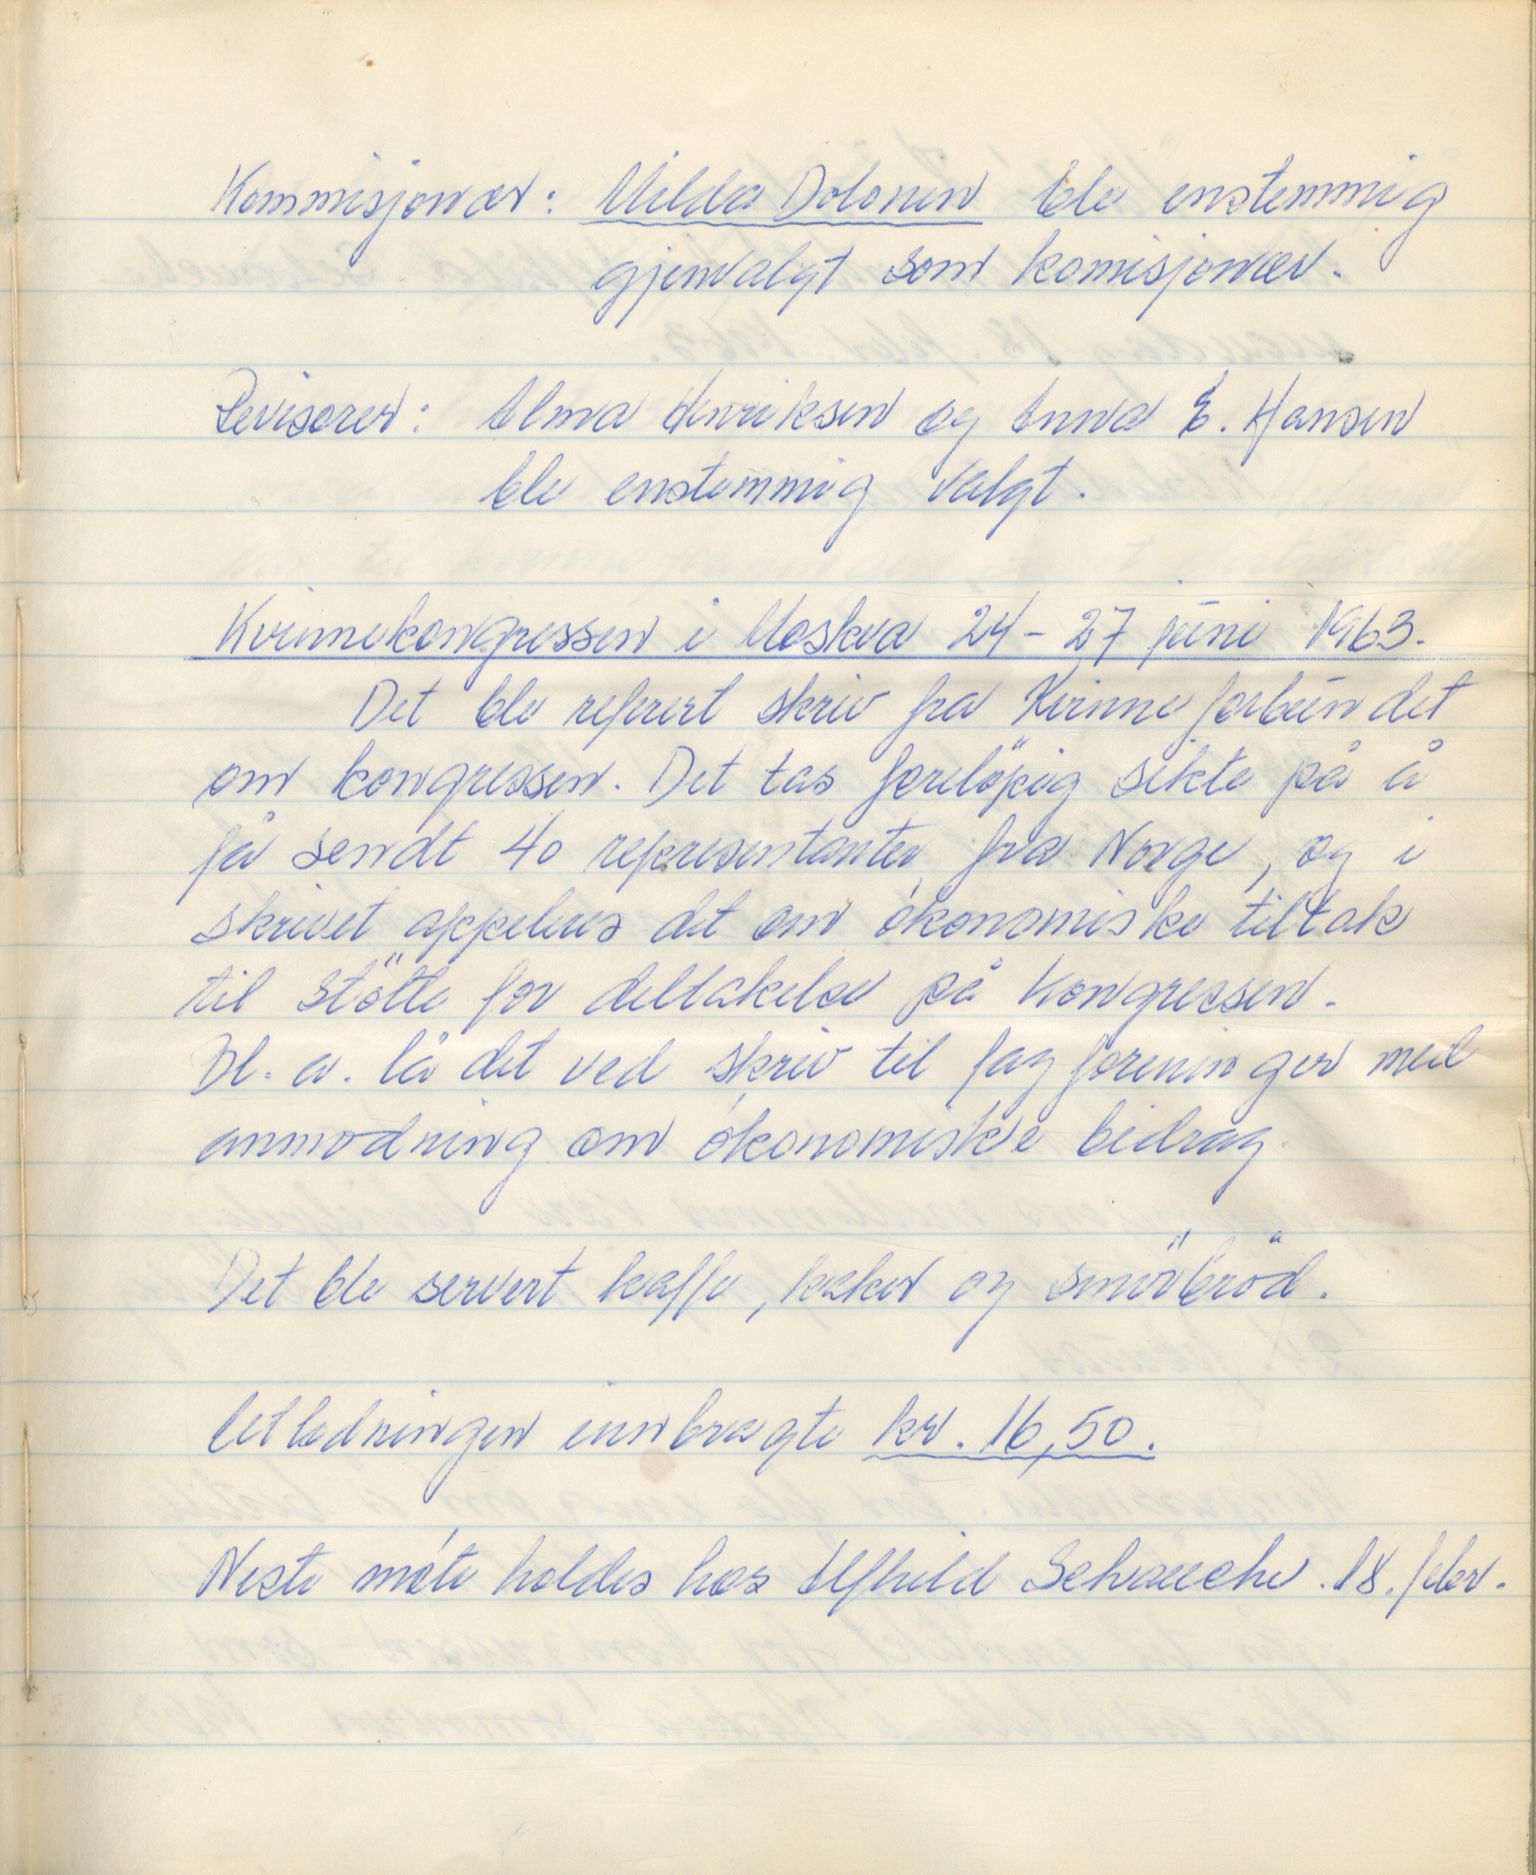 Kommisjonær: Milda Dolonen ble enstemmig
gjenvalgt som komisjonær.
Revisorer: Alma Henriksen og Anna E. Hansen
ble enstemmig valgt.
Kvinnekongressen i Moskva 24 - 27 juni 1963.
Det ble referert skriv fra Kvinneforbundet
om kongressen. Det tas foreløpig sikte på å
få sendt 40 representanter fra Norge, og i
skrivet appeleres det om økonomiske tiltak
til støtte for deltakelse på Kongressen.
Bl. a. lå det ved skriv til fagforeninger med
anmodning om økonomiske bidrag.
Det ble servert kaffe, kaker og smörbröd.
Utlodningen innbragte kr. 16,50.
Neste møte holdes hos Alfhild Schanche. 18. febr.